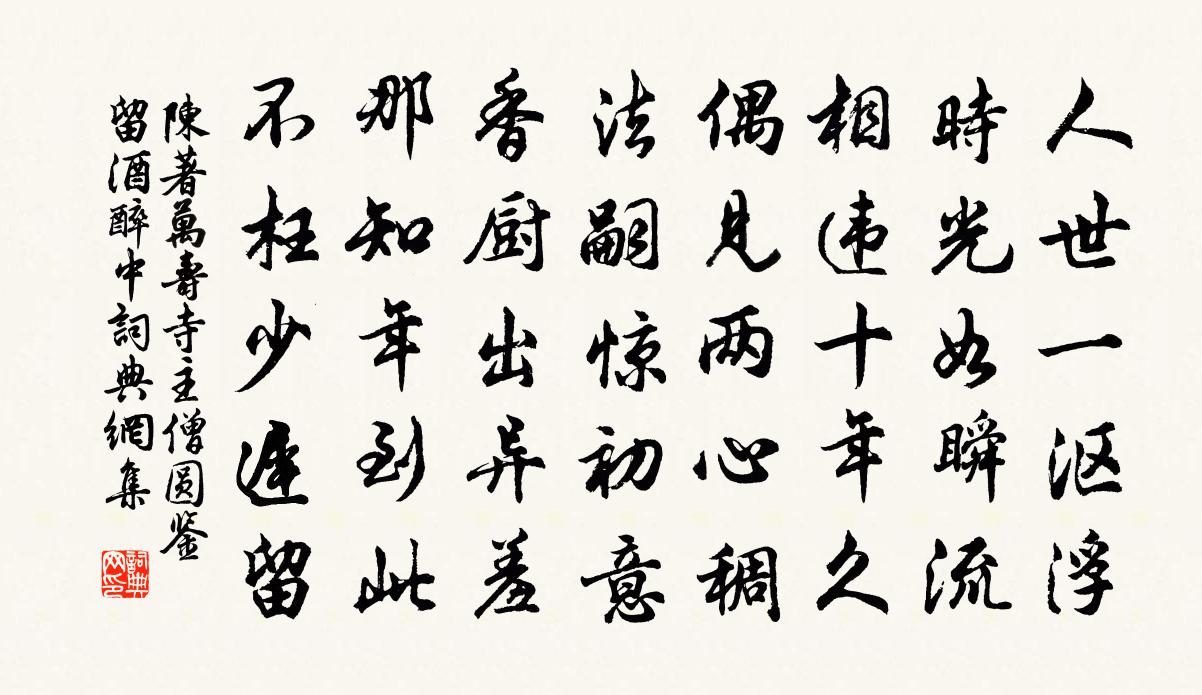 人世一沤浮
時光如瞬流
相违十年久
偶見两心稠
法嗣惊初意
香厨出异羞
那知年到此
不枉少遲留
陳著萬壽寺主僧圆鉴
留酒醉中詞典網集
詞典
网印